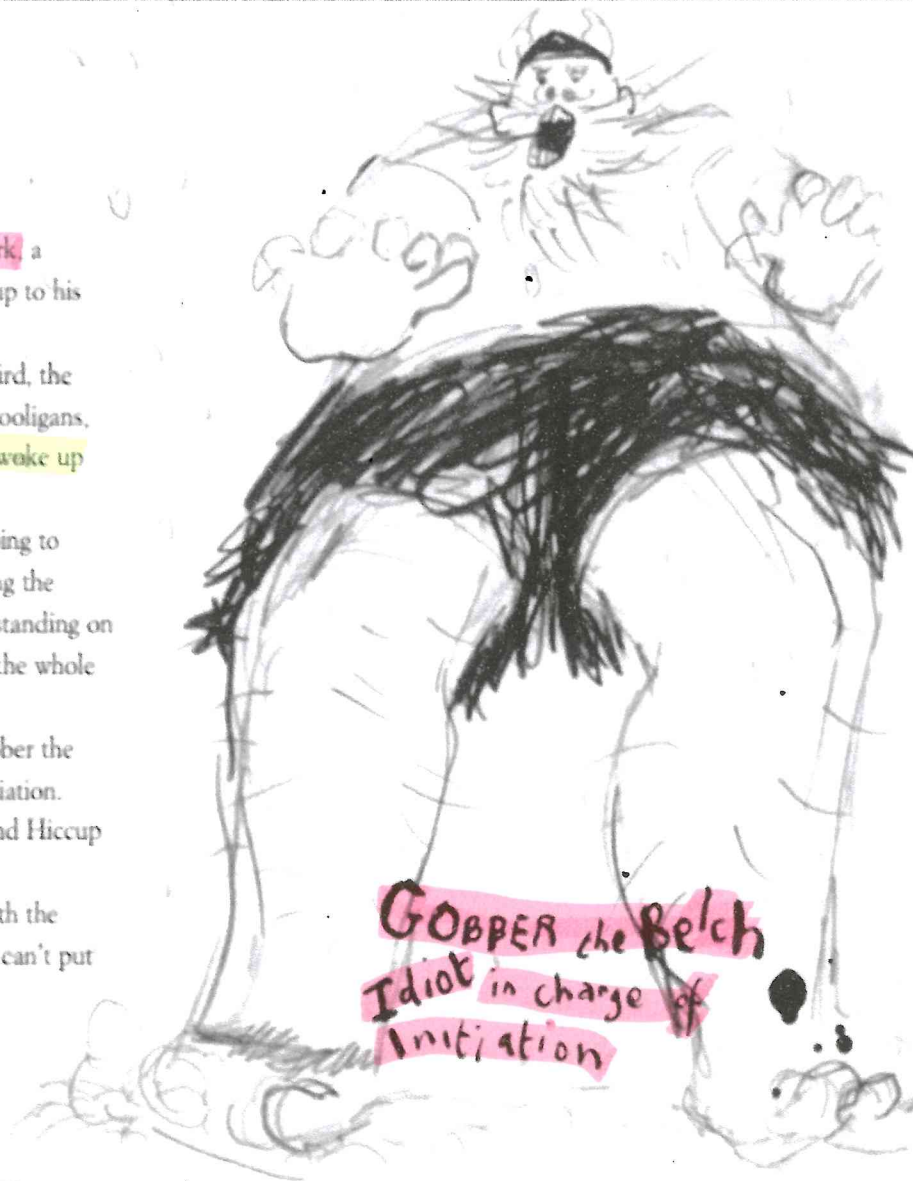 rk, a
up to his
ird, the
ooligans,
woke up
ing to
ng the
standing on
the whole
ber the
iation.
nd Hiccup
th the
can't put
GOBBER the Belch
Idiot in charge of
Initiation